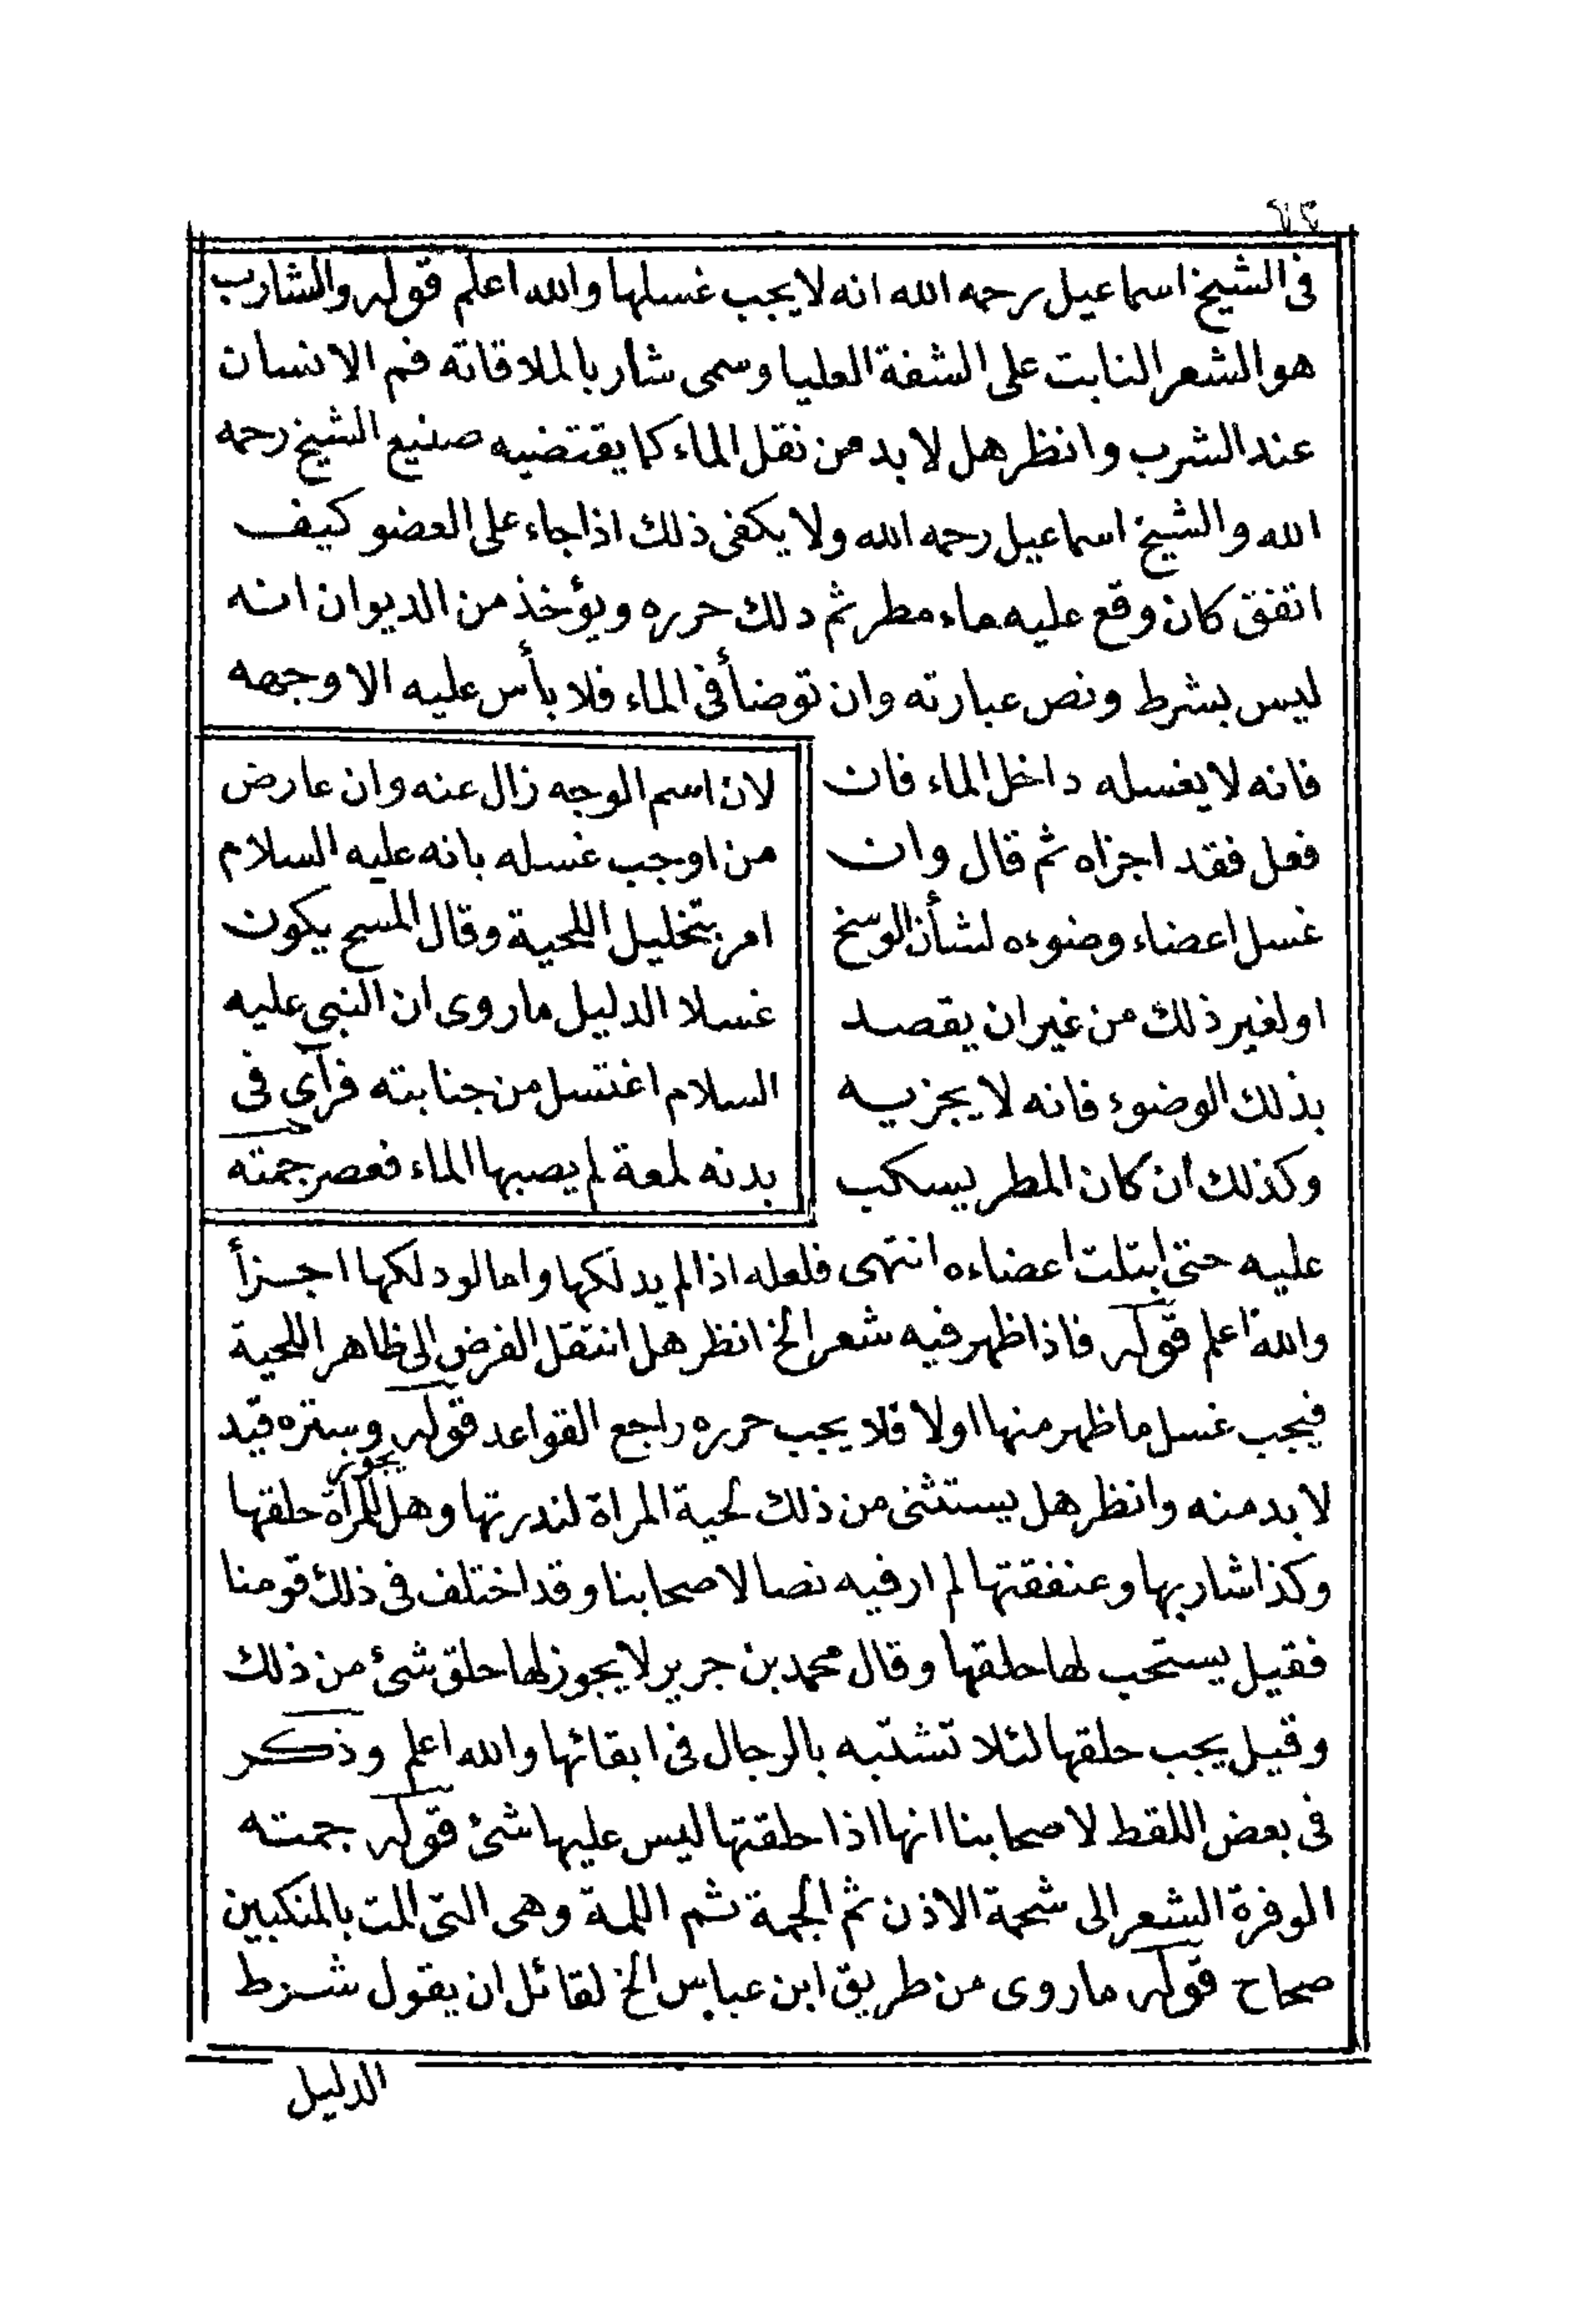 في الشيخ اسماعيل رحمه الله انه لا يجب غسلها والله اعلم قوله والشارب
هو الشعر النابت على الشفة العليا وسمى شاربا لملاقاته فم الانسان
عند الشرب وانظر هل لا بد من نقل الماء كما يقتضيه صنيع الشيخ رحمه
الله والشيخ اسماعيل رحمه الله ولا يكفى ذلك اذا جاء على العضو كيف
اتفق كان وقع عليه ماء مطر ثم دلك حرره ويؤخذ من الديوان انه
ليس بشرط ونص عبارته وان توضأ في الماء فلا بأس عليه الا وجهه
فانه لا يغسله داخل الماء فان
فعل فقد اجزاه ثم قال وان
غسل اعضاء وضوءه لشأن الوسخ
او لغير ذلك من غير ان يقصد
بذلك الوضوء فانه لا يجزيه
وكذلك ان كان المطر يسكب
لان اسم الوجه زال عنه وان عارض
من اوجب غسله بانه عليه السلام
امر بتخليل اللحية وقال المسح يكون
غسلا الدليل ما روى ان النبي عليه
السلام اغتسل من جنابته فرآى في
بدنه لمعة لم يصبها الماء فعصر جمته
عليه حتى ابتلت اعضاءه انتهى فلعله اذا لم يدلكها واما لو دلكها اجزأ
والله اعلم قوله فاذا ظهر فيه شعر الخ انظر هل انتقل الفرض الى ظاهر اللحية
فيجب غسل ما ظهر منها اولا فلا يجب حرره راجع القواعد قوله وستره قيد
لا بد منه وانظر هل يستثنى من ذلك لحية المراة لندرتها وهل يجوز للمرأة حلقها
وكذا شاربها وعنفقتها لم ار فيه نصا لاصحابنا وقد اختلف في ذلك قومنا
فقيل يستحب لها حلقها وقال محمد بن جرير لا يجوز لها حلق شئ من ذلك
وقيل يجب حلقها لئلا تشتبه بالرجال في ابقائها والله اعلم وذكر
في بعض اللقط لاصحابنا انها اذا حلقتها ليس عليها شئ قوله جمته
الوفرة الشعر الى شحمة الاذن ثم الجمة ثم اللمة وهى التى المت بالمنكبين
صحاح قوله ما روى من طريق ابن عباس الخ لقائل ان يقول شرط
الدليل